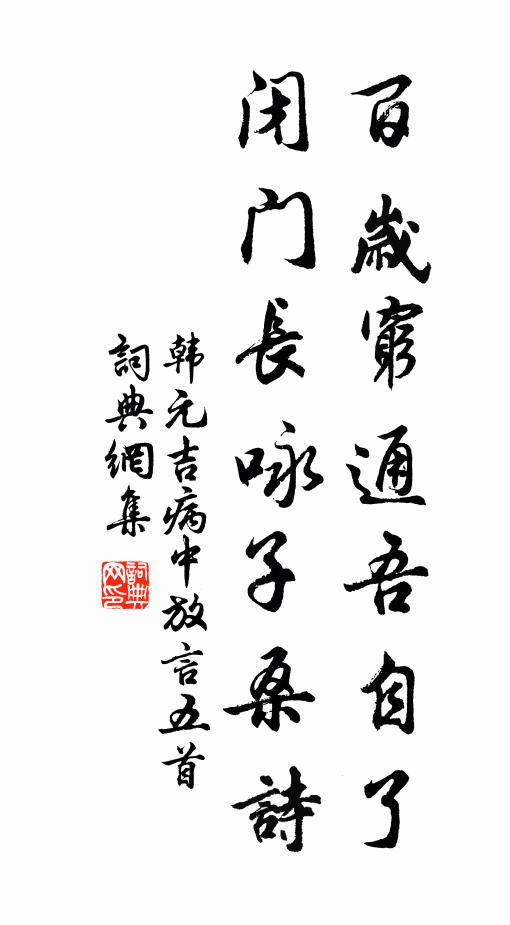 百歲窮通吾自了
闭门長咏子桑詩
韩元吉病中放言五首
詞典網集
詞典网印